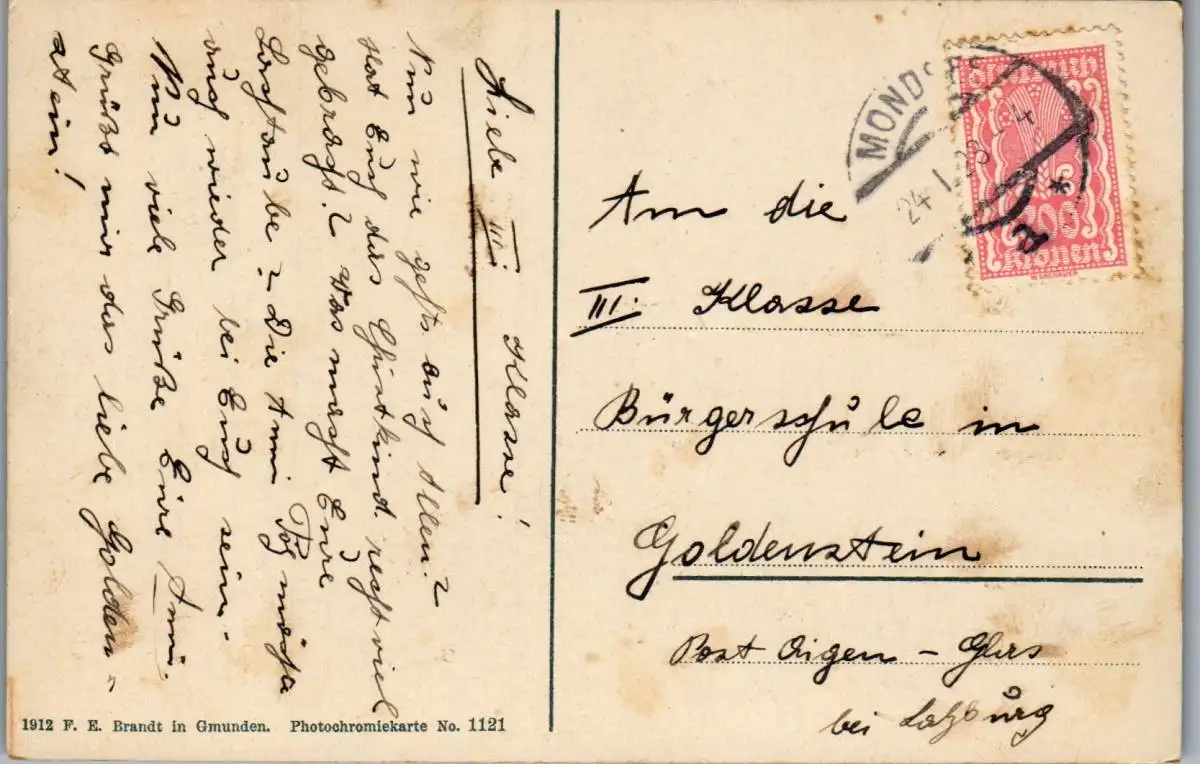 Liebe III. Klasse!
Nun wie gehts euch Allen?
Hat Euch das Christkind recht viel
gebracht? Was macht Eure
Lachtaube? Die Anni möchte
auch wieder bei Euch sein.
Nun viele Grüße Eure Anni.
Grüßt mir das liebe Golden„
stein!
MONDSEE
24 I 23
Österreich
Kronen
An die
III. Klasse
Bürgerschule in
Goldenstein
Post Aigen – Glas
bei Salzburg
1912 F. E. Brandt in Gmunden. Photochromiekarte No. 1121